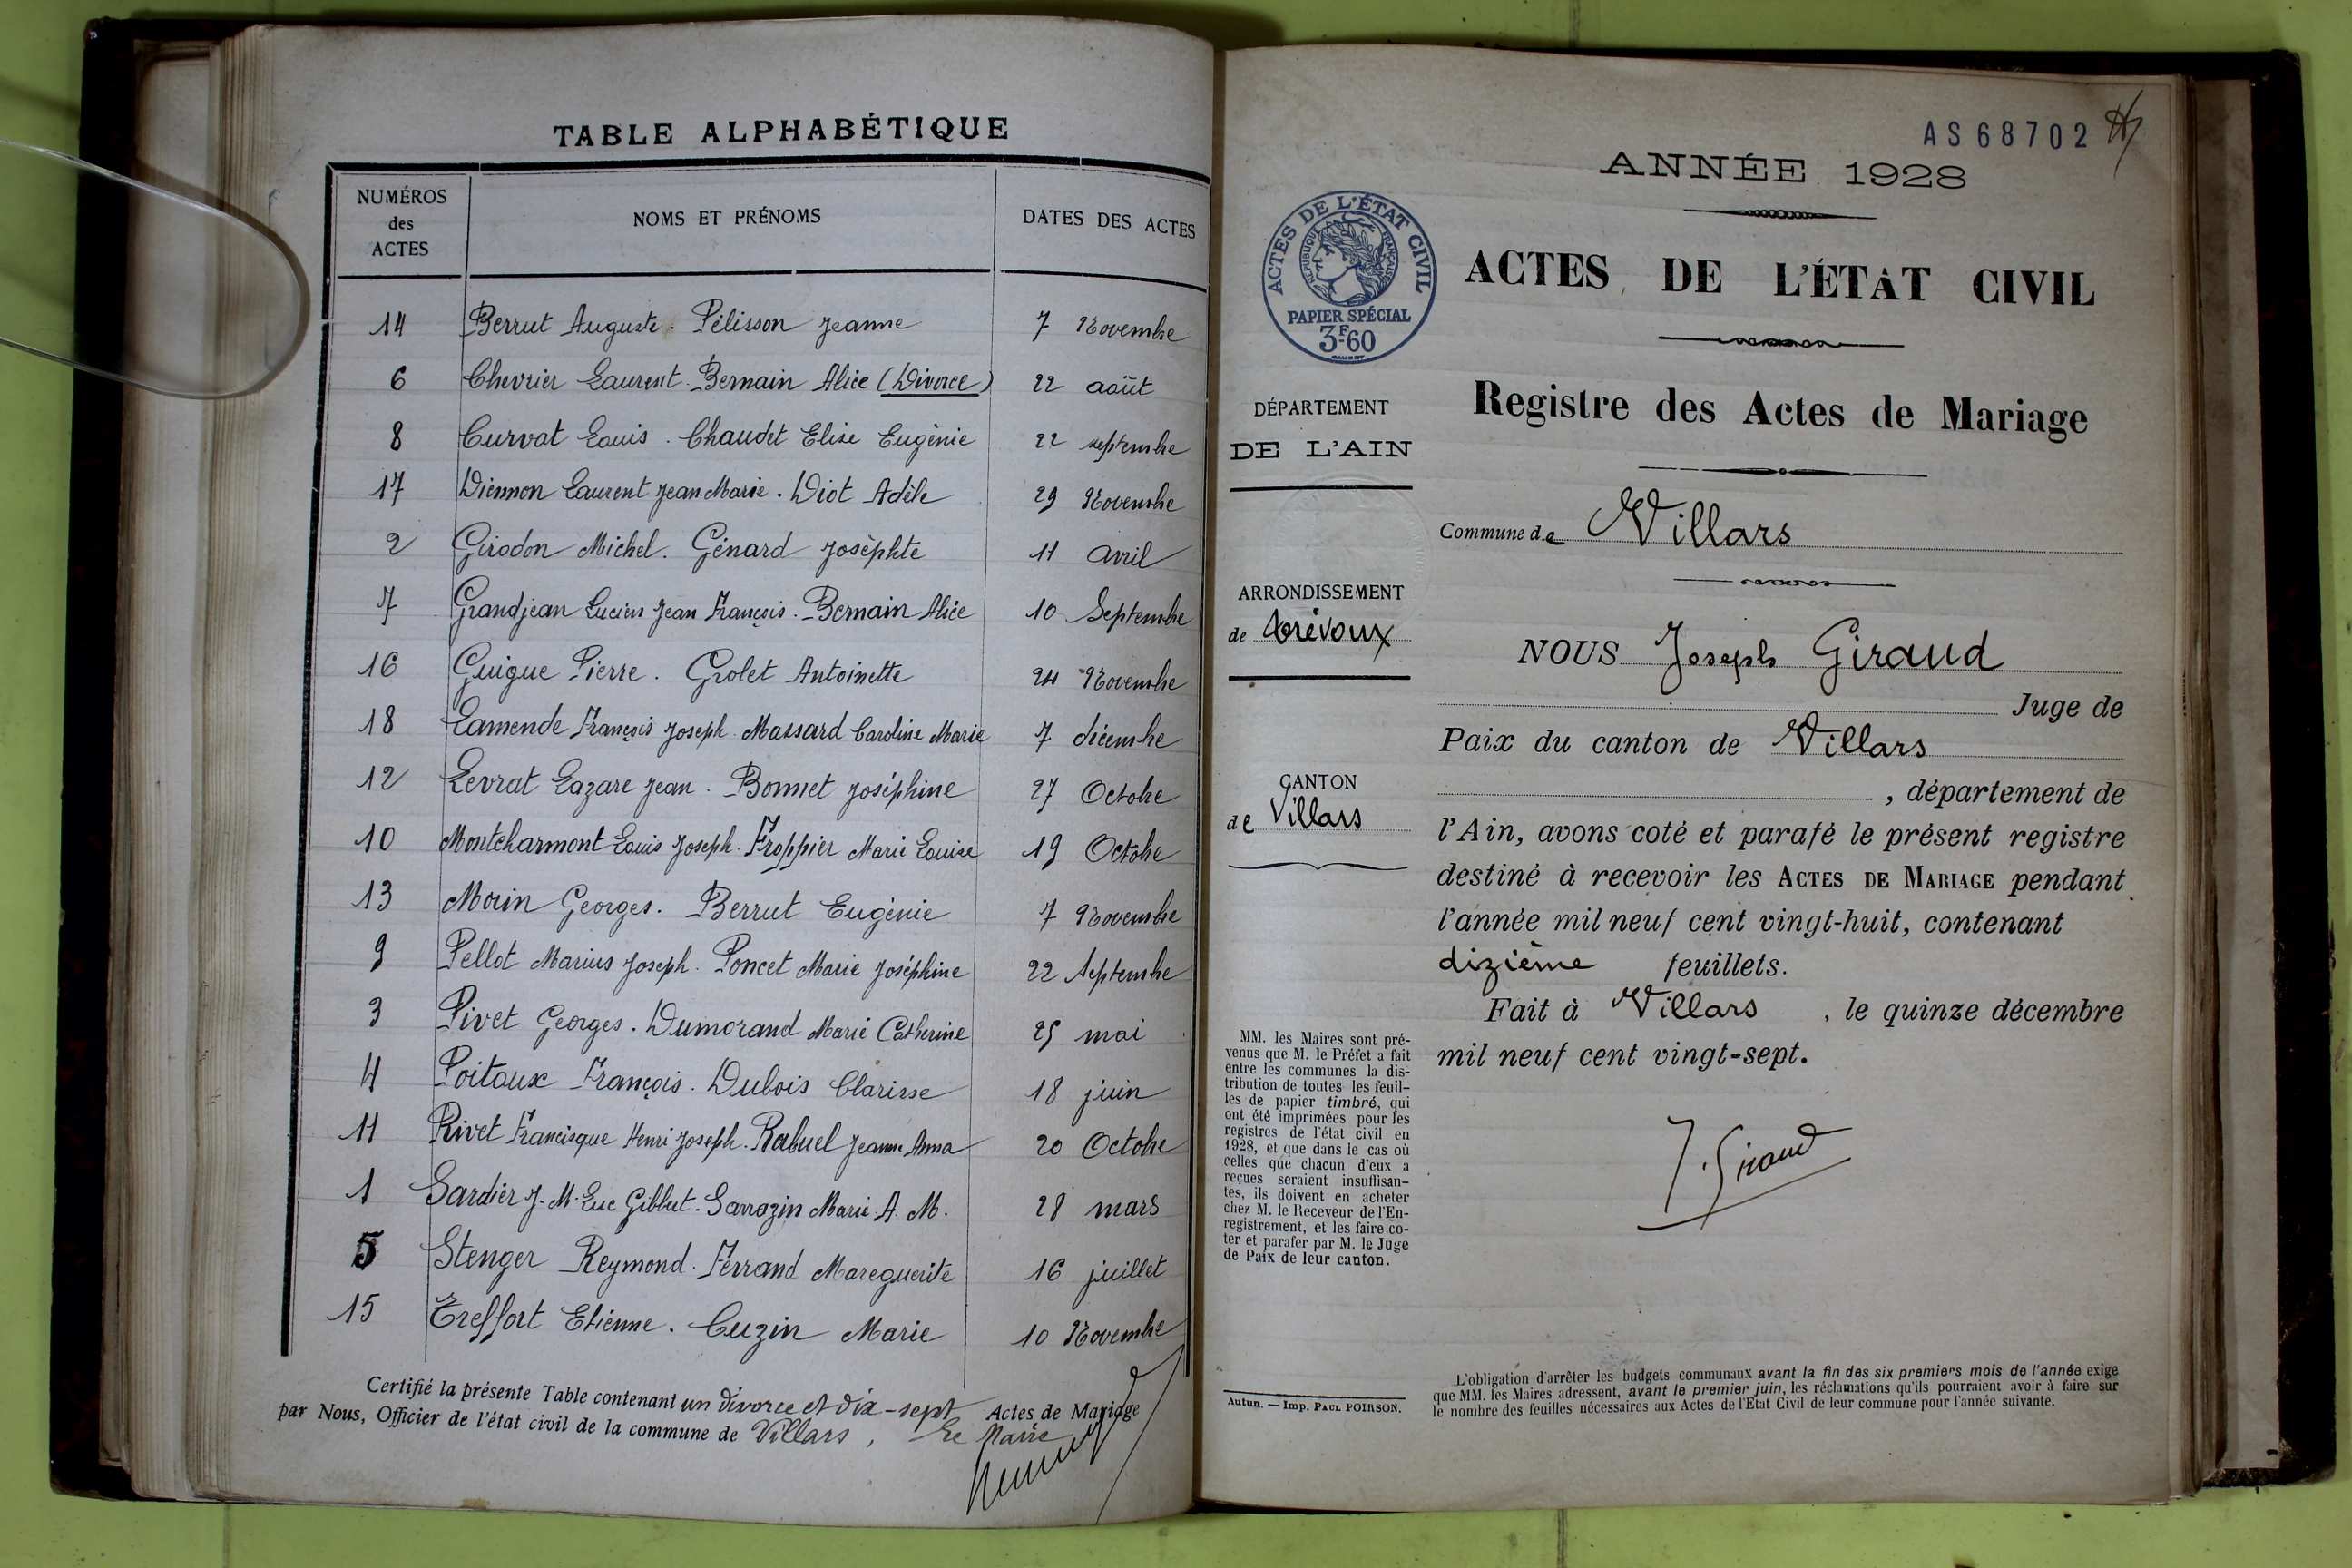 TABLE ALPHABÉTIQUE
NUMÉROS des ACTES
NOMS ET PRÉNOMS
DATES DES ACTES
14 Berrut Auguste. Pélisson Jeanne 7 Novembre
6 Chevrier Laurent. Bernain Alice (Divorce) 22 août
8 Curvat Louis. Chaudet Elise Eugénie 22 septembre
17 Diennon Laurent Jean Marie. Diot Adèle 29 Novembre
2 Girodon Michel. Génard Josèphte 11 avril
7 Grandjean Lucien Jean François. Bernain Alice 10 Septembre
16 Guigue Pierre. Grolet Antoinette 24 Novembre
18 Lamende François Joseph. Massard Caroline Marie 7 décembre
12 Levrat Lazare Jean. Bonnet Joséphine 27 Octobre
10 Montcharmont Louis Joseph. Froppier Marie Louise 19 Octobre
13 Morin Georges. Berrut Eugénie 7 Novembre
9 Pellot Marius Joseph. Poncet Marie Joséphine 22 Septembre
3 Pivet Georges. Dumorand Marie Catherine 25 mai
4 Poitoux François. Dubois Clarisse 18 juin
11 Rivet Francisque Henri Joseph. Rabuel Jeanne Anna 20 Octobre
1 Sardier J. M. Luc Gibbut. Sarrazin Marie A. M. 28 mars
5 Stenger Reymond. Ferrand Mareguerite 16 juillet
15 Treffort Etienne. Cuzin Marie 10 Novembre
Certifié la présente Table contenant un divorce et dix-sept Actes de Mariage
par Nous, Officier de l'état civil de la commune de Villars, Le Maire
AS 68702
ANNÉE 1928
ACTES DE L'ÉTAT CIVIL
RÉPUBLIQUE FRANÇAISE
PAPIER SPÉCIAL
3F60
ACTES DE L'ÉTAT CIVIL
DÉPARTEMENT
DE L'AIN
Registre des Actes de Mariage
Commune de Villars
ARRONDISSEMENT
de Trévoux
NOUS Joseph Giraud
Juge de
Paix du canton de Villars
CANTON
de Villars
, département de
l'Ain, avons coté et parafé le présent registre
destiné à recevoir les ACTES DE MARIAGE pendant
l'année mil neuf cent vingt-huit, contenant
dizième feuillets.
Fait à Villars, le quinze décembre
mil neuf cent vingt-sept.
J. Giraud
MM. les Maires sont pré-
venus que M. le Préfet a fait
entre les communes la dis-
tribution de toutes les feuil-
les de papier timbré, qui
ont été imprimées pour les
registres de l'état civil en
1928, et que dans le cas où
celles que chacun d'eux a
reçues seraient insuffisan-
tes, ils doivent en acheter
chez M. le Receveur de l'En-
registrement, et les faire co-
ter et parafer par M. le Juge
de Paix de leur canton.
Autun. — Imp. PAUL POIRSON.
L'obligation d'arrêter les budgets communaux avant la fin des six premiers mois de l'année exige
que MM. les Maires adressent, avant le premier juin, les réclamations qu'ils pourraient avoir à faire sur
le nombre des feuilles nécessaires aux Actes de l'Etat Civil de leur commune pour l'année suivante.